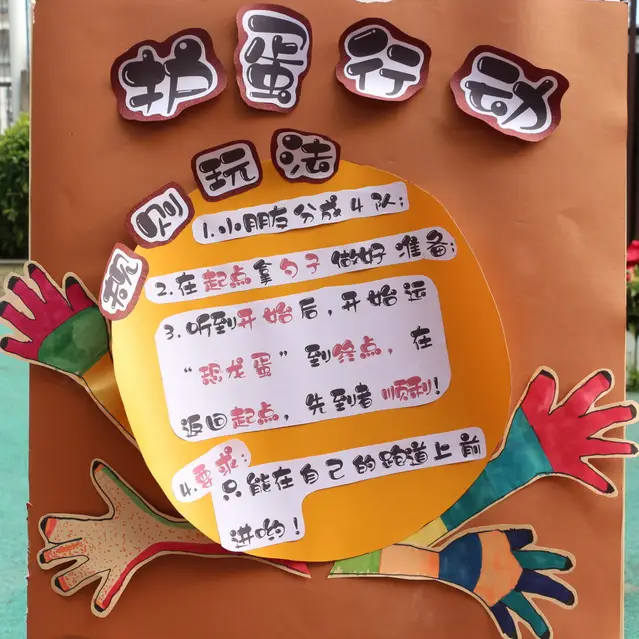 护蛋行动
则玩法
1.小朋友分成4队:
2.在起点拿勺子做好准备:
3.听到开始后，开始运
“恐龙蛋”到终点，在
返回起点，先到者顺利!
4.要求:
只能在自己的跑道上前
进哟!